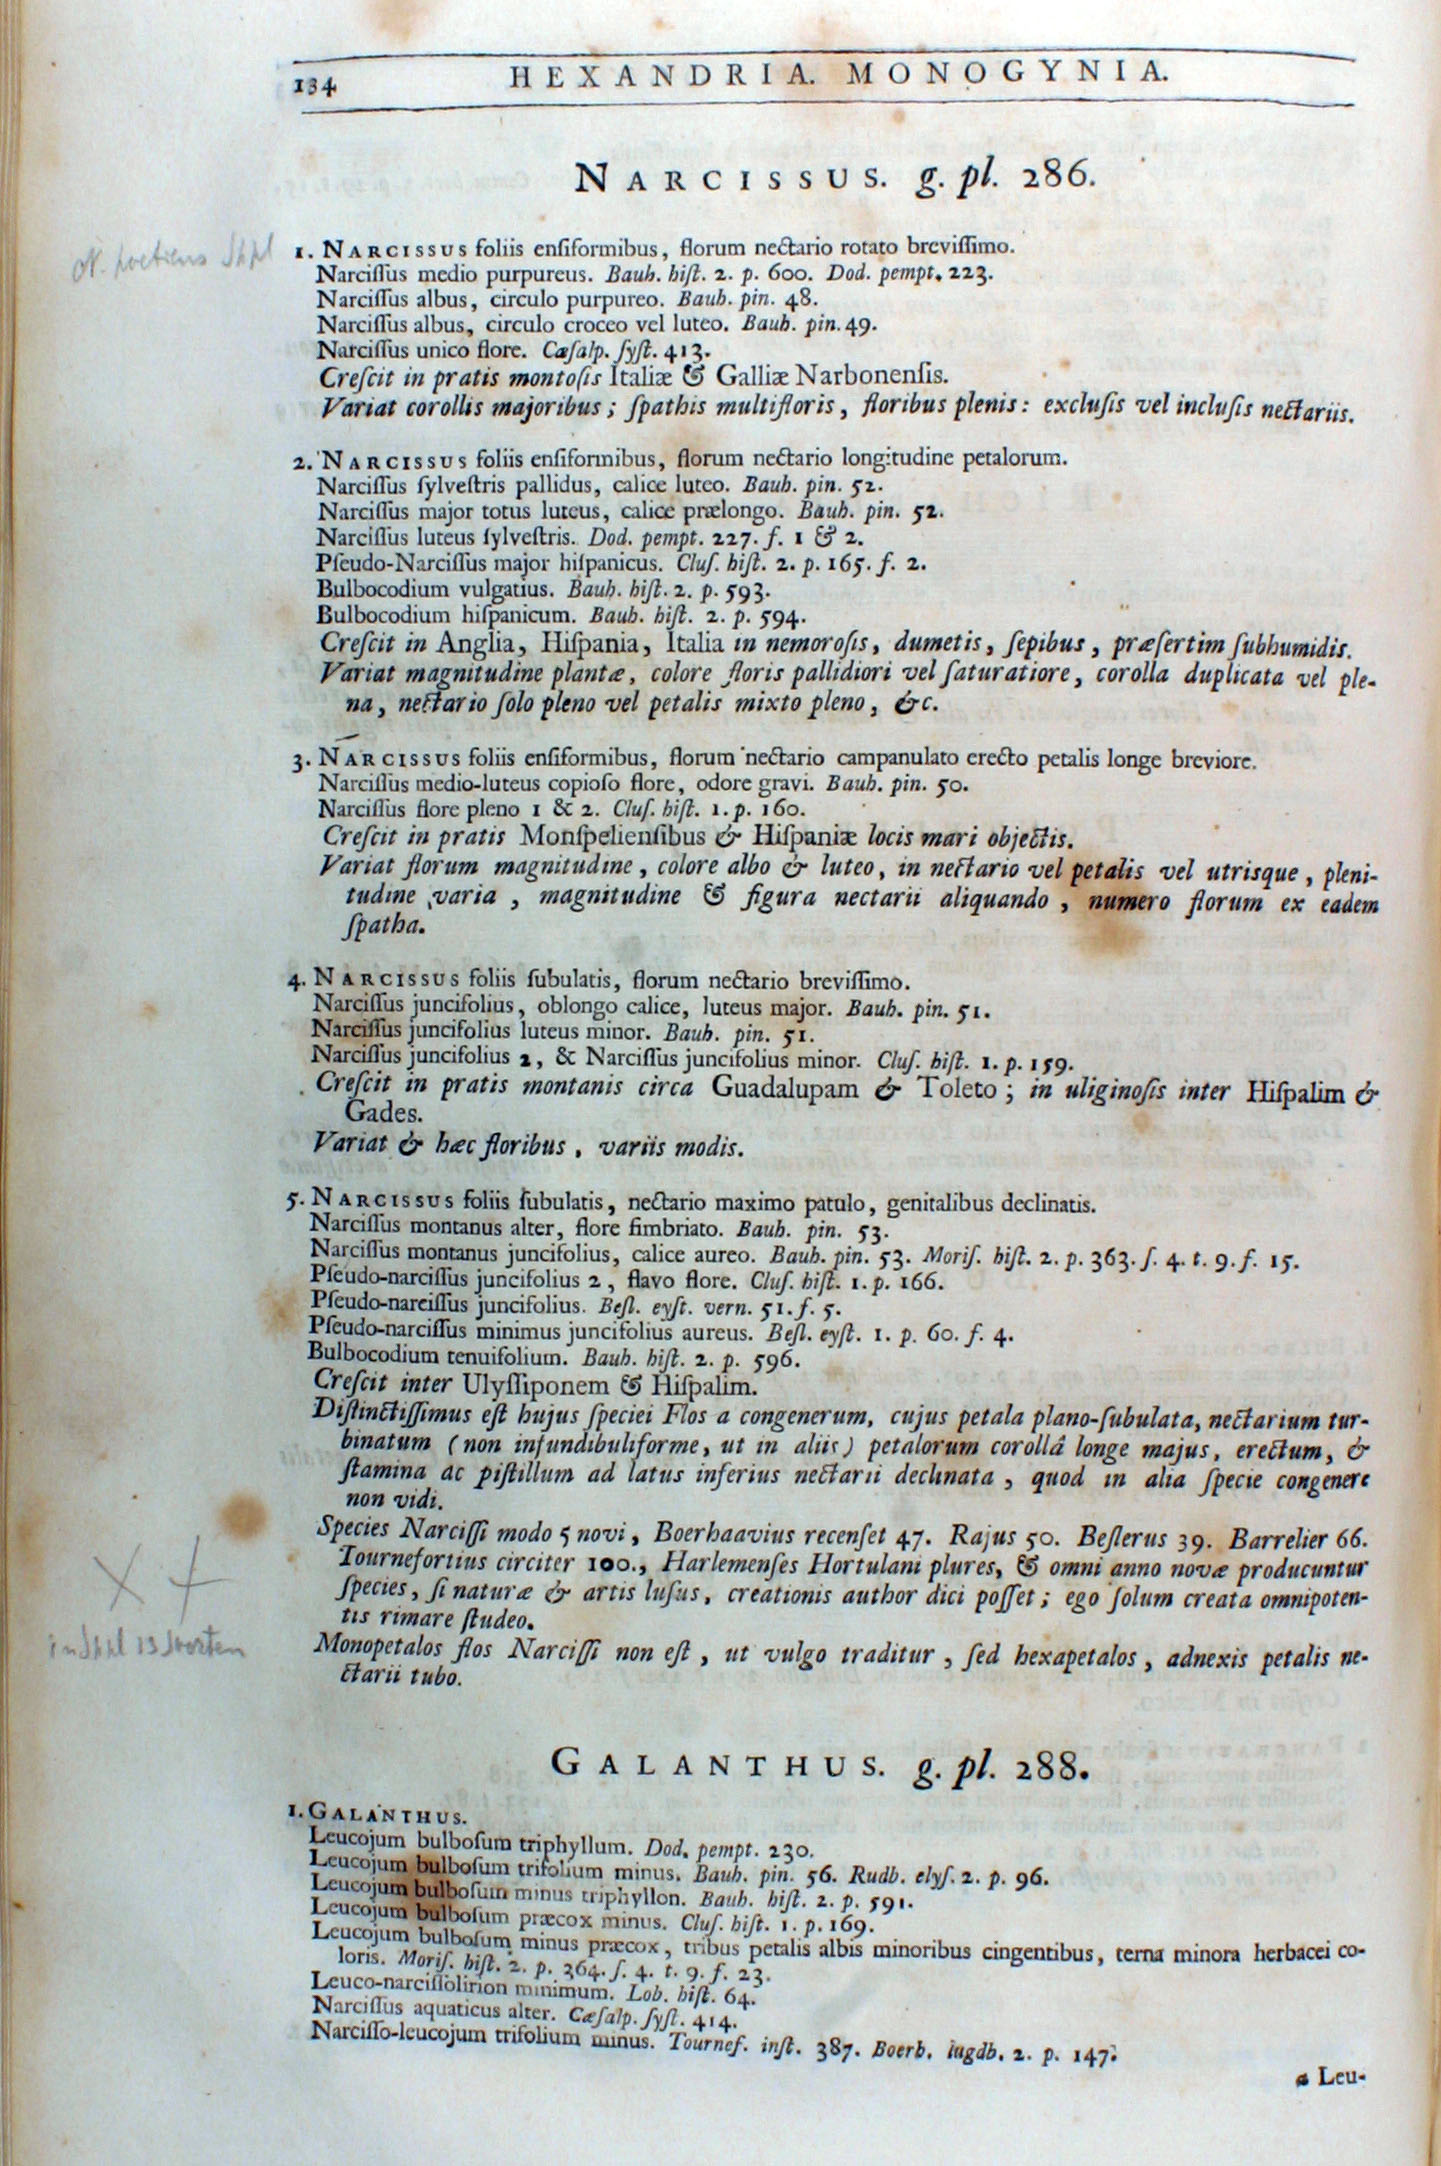 134 HEXANDRIA. MONOGYNIA.
NARCISSUS. g. pl. 286.
N. poeticus
1. NARCISSUS foliis enſiformibus, florum nectario rotato breviſſimo.
Narciſſus medio purpureus. Bauh. hiſt. 2. p. 600. Dod. pempt. 223.
Narciſſus albus, circulo purpureo. Bauh. pin. 48.
Narciſſus albus, circulo croceo vel luteo. Bauh. pin. 49.
Narciſſus unico flore. Cæſalp. ſyſt. 413.
Creſcit in pratis montoſis Italiæ & Galliæ Narbonenſis.
Variat corollis majoribus; ſpathis multifloris, floribus plenis: excluſis vel incluſis nectariis.
2. NARCISSUS foliis enſiformibus, florum nectario longitudine petalorum.
Narciſſus ſylveſtris pallidus, calice luteo. Bauh. pin. 52.
Narciſſus major totus luteus, calice prælongo. Bauh. pin. 52.
Narciſſus luteus ſylveſtris. Dod. pempt. 227. f. 1 & 2.
Pſeudo-Narciſſus major hiſpanicus. Cluſ. hiſt. 2. p. 165. f. 2.
Bulbocodium vulgatius. Bauh. hiſt. 2. p. 593.
Bulbocodium hiſpanicum. Bauh. hiſt. 2. p. 594.
Creſcit in Anglia, Hiſpania, Italia in nemoroſis, dumetis, ſepibus, præſertim ſubhumidis.
Variat magnitudine plantæ, colore floris pallidiori vel ſaturatiore, corolla duplicata vel ple-
na, nectario ſolo pleno vel petalis mixto pleno, &c.
3. NARCISSUS foliis enſiformibus, florum nectario campanulato erecto petalis longe breviore.
Narciſſus medio-luteus copioſo flore, odore gravi. Bauh. pin. 50.
Narciſſus flore pleno 1 & 2. Cluſ. hiſt. 1. p. 160.
Creſcit in pratis Monſpelienſibus & Hiſpaniæ locis mari objectis.
Variat florum magnitudine, colore albo & luteo, in nectario vel petalis vel utrisque, pleni-
tudine varia, magnitudine & figura nectarii aliquando, numero florum ex eadem
ſpatha.
4. NARCISSUS foliis ſubulatis, florum nectario breviſſimo.
Narciſſus juncifolius, oblongo calice, luteus major. Bauh. pin. 51.
Narciſſus juncifolius luteus minor. Bauh. pin. 51.
Narciſſus juncifolius 2, & Narciſſus juncifolius minor. Cluſ. hiſt. 1. p. 159.
Creſcit in pratis montanis circa Guadalupam & Toleto; in uliginoſis inter Hiſpalim &
Gades.
Variat & hæc floribus, variis modis.
5. NARCISSUS foliis ſubulatis, nectario maximo patulo, genitalibus declinatis.
Narciſſus montanus alter, flore fimbriato. Bauh. pin. 53.
Narciſſus montanus juncifolius, calice aureo. Bauh. pin. 53. Moriſ. hiſt. 2. p. 363. ſ. 4. t. 9. f. 15.
Pſeudo-narciſſus juncifolius 2, flavo flore. Cluſ. hiſt. 1. p. 166.
Pſeudo-narciſſus juncifolius. Beſl. eyſt. vern. 51. f. 5.
Pſeudo-narciſſus minimus juncifolius aureus. Beſl. eyſt. 1. p. 60. f. 4.
Bulbocodium tenuifolium. Bauh. hiſt. 2. p. 596.
Creſcit inter Ulyſſiponem & Hiſpalim.
Diſtinctiſſimus eſt hujus ſpeciei Flos a congenerum, cujus petala plano-ſubulata, nectarium tur-
binatum (non infundibuliforme, ut in aliis) petalorum corollâ longe majus, erectum, &
ſtamina ac piſtillum ad latus inferius nectarii declinata, quod in alia ſpecie congenere
non vidi.
Species Narciſſi modo 5 novi, Boerhaavius recenſet 47. Rajus 50. Beſlerus 39. Barrelier 66.
Tournefortius circiter 100., Harlemenſes Hortulani plures, & omni anno novæ producuntur
ſpecies, ſi naturæ & artis luſus, creationis author dici poſſet; ego ſolum creata omnipoten-
tis rimare ſtudeo.
Monopetalos flos Narciſſi non eſt, ut vulgo traditur, ſed hexapetalos, adnexis petalis ne-
ctarii tubo.
GALANTHUS. g. pl. 288.
1. GALANTHUS.
Leucojum bulboſum triphyllum. Dod. pempt. 230.
Leucojum bulboſum trifolium minus. Bauh. pin. 56. Rudb. elyſ. 2. p. 96.
Leucojum bulboſum minus triphyllon. Bauh. hiſt. 2. p. 591.
Leucojum bulboſum præcox minus. Cluſ. hiſt. 1. p. 169.
Leucojum bulboſum minus præcox, tribus petalis albis minoribus cingentibus, terna minora herbacei co-
loris. Moriſ. hiſt. 2. p. 364. ſ. 4. t. 9. f. 23.
Leuco-narciſſolirion minimum. Lob. hiſt. 64.
Narciſſus aquaticus alter. Cæſalp. ſyſt. 414.
Narciſſo-leucojum trifolium minus. Tournef. inſt. 387. Boerh. lugdb. 2. p. 147.
Leu-